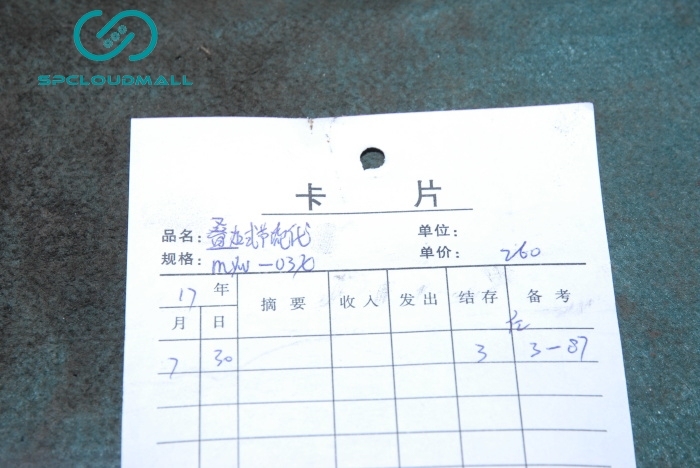 SPCLOUDMALL
卡 片
品名: 叠加式节流阀 单位:
规格: 单价: 260
17 年 摘要 收入 发出 结存 备考
月 日
左
7 30 3 3-87